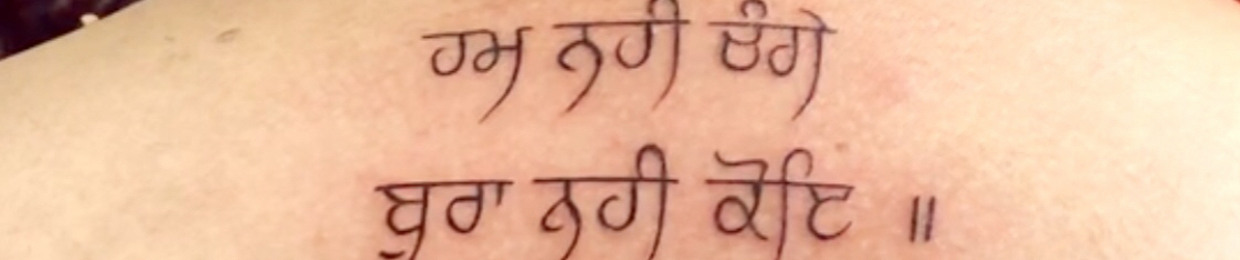 ਹਮ ਨਹੀ ਚੰਗੇ
ਬੁਰਾ ਨਹੀ ਕੋਇ ॥